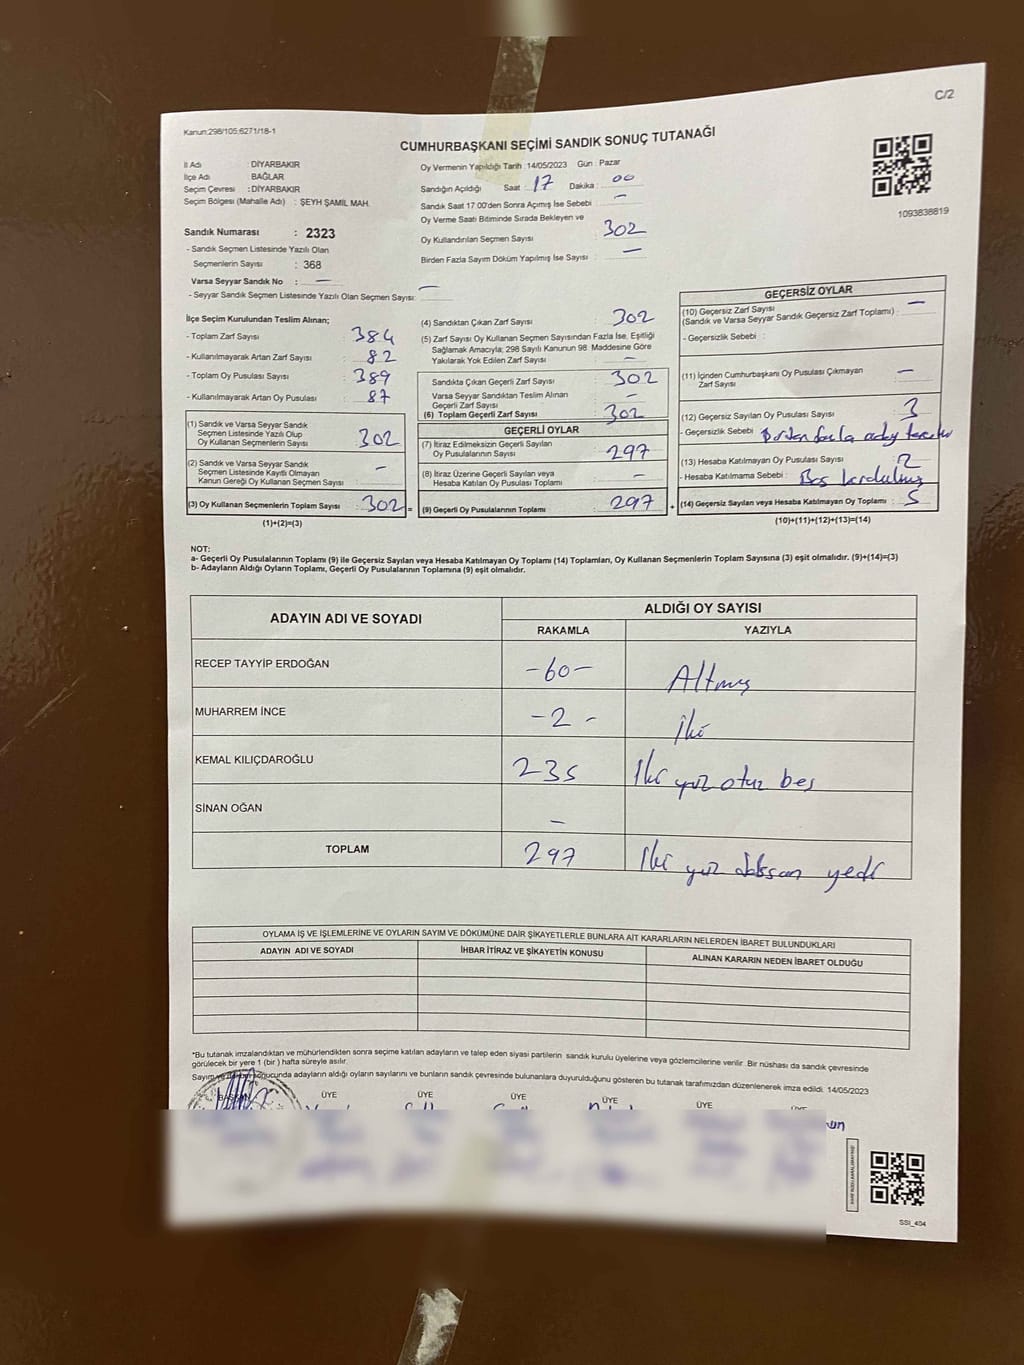 C/2
Kanun:298/105;6271/18-1
CUMHURBAŞKANI SEÇİMİ SANDIK SONUÇ TUTANAĞI
İl Adı : DİYARBAKIR
İlçe Adı : BAĞLAR
Seçim Çevresi : DİYARBAKIR
Seçim Bölgesi (Mahalle Adı) : ŞEYH ŞAMİL MAH.
Sandık Numarası : 2323
- Sandık Seçmen Listesinde Yazılı Olan
Seçmenlerin Sayısı : 368
Varsa Seyyar Sandık No : —
- Seyyar Sandık Seçmen Listesinde Yazılı Olan Seçmen Sayısı: —
Oy Vermenin Yapıldığı Tarih : 14/05/2023 Gün : Pazar
Sandığın Açıldığı Saat : 17 Dakika : 00
Sandık Saat 17.00'den Sonra Açımış İse Sebebi : —
Oy Verme Saati Bitiminde Sırada Bekleyen ve
Oy Kullandırılan Seçmen Sayısı : 302
Birden Fazla Sayım Döküm Yapılmış İse Sayısı : —
1093838819
İlçe Seçim Kurulundan Teslim Alınan;
- Toplam Zarf Sayısı : 384
- Kullanılmayarak Artan Zarf Sayısı : 82
- Toplam Oy Pusulası Sayısı : 389
- Kullanılmayarak Artan Oy Pusulası : 87
(1) Sandık ve Varsa Seyyar Sandık
Seçmen Listesinde Yazılı Olup
Oy Kullanan Seçmenlerin Sayısı : 302
(2) Sandık ve Varsa Seyyar Sandık
Seçmen Listesinde Kayıtlı Olmayan
Kanun Gereği Oy Kullanan Seçmen Sayısı : —
(3) Oy Kullanan Seçmenlerin Toplam Sayısı : 302 =
(1)+(2)=(3)
(4) Sandıktan Çıkan Zarf Sayısı : 302
(5) Zarf Sayısı Oy Kullanan Seçmen Sayısından Fazla İse, Eşitliği
Sağlamak Amacıyla; 298 Sayılı Kanunun 98. Maddesine Göre
Yakılarak Yok Edilen Zarf Sayısı : —
Sandıkta Çıkan Geçerli Zarf Sayısı : 302
Varsa Seyyar Sandıktan Teslim Alınan
Geçerli Zarf Sayısı : —
(6) Toplam Geçerli Zarf Sayısı : 302
GEÇERLİ OYLAR
(7) İtiraz Edilmeksizin Geçerli Sayılan
Oy Pusulasının Sayısı : 297
(8) İtiraz Üzerine Geçerli Sayılan veya
Hesaba Katılan Oy Pusulası Toplamı : —
(9) Geçerli Oy Pusulalarının Toplamı : 297 +
GEÇERSİZ OYLAR
(10) Geçersiz Zarf Sayısı
(Sandık ve Varsa Seyyar Sandık Geçersiz Zarf Toplamı) : —
- Geçersizlik Sebebi :
(11) İçinden Cumhurbaşkanı Oy Pusulası Çıkmayan
Zarf Sayısı : —
(12) Geçersiz Sayılan Oy Pusulası Sayısı : 3
- Geçersizlik Sebebi : Birden fazla aday tercihi
(13) Hesaba Katılmayan Oy Pusulası Sayısı : 2
- Hesaba Katılmama Sebebi : Boş
(14) Geçersiz Sayılan veya Hesaba Katılmayan Oy Toplamı : 5
(10)+(11)+(12)+(13)=(14)
NOT:
a- Geçerli Oy Pusulalarının Toplamı (9) ile Geçersiz Sayılan veya Hesaba Katılmayan Oy Toplamı (14) Toplamları, Oy Kullanan Seçmenlerin Toplam Sayısına (3) eşit olmalıdır. (9)+(14)=(3)
b- Adayların Aldığı Oyların Toplamı, Geçerli Oy Pusulalarının Toplamına (9) eşit olmalıdır.
ADAYIN ADI VE SOYADI ALDIĞI OY SAYISI
RAKAMLA YAZIYLA
RECEP TAYYİP ERDOĞAN -60- Altmış
MUHARREM İNCE -2- İki
KEMAL KILIÇDAROĞLU 235 İki yüz otuz beş
SİNAN OĞAN —
TOPLAM 297 İki yüz doksan yedi
OYLAMA İŞ VE İŞLEMLERİNE VE OYLARIN SAYIM VE DÖKÜMÜNE DAİR ŞİKAYETLERLE BUNLARA AİT KARARLARIN NELERDEN İBARET BULUNDUKLARI
ADAYIN ADI VE SOYADI İHBAR İTİRAZ VE ŞİKAYETİN KONUSU ALINAN KARARIN NEDEN İBARET OLDUĞU
*Bu tutanak imzalandıktan ve mühürlendikten sonra seçime katılan adayların ve talep eden siyasi partilerin sandık kurulu üyelerine veya gözlemcilerine verilir. Bir nüshası da sandık çevresinde
görülecek bir yere 1 (bir ) hafta süreyle asılır.
Sayım ve döküm sonucunda adayların aldığı oyların sayılarını ve bunların sandık çevresinde bulunanlara duyurulduğunu gösteren bu tutanak tarafımızdan düzenlenerek imza edildi. 14/05/2023
BAŞKAN ÜYE ÜYE ÜYE ÜYE ÜYE ÜYE
SSI_404